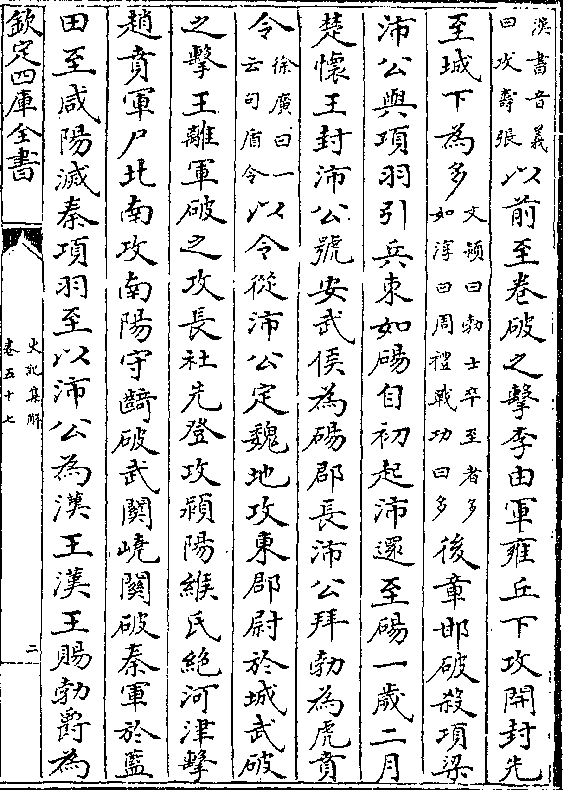 漢書音義曰攻壽張以前至卷破之擊李由軍雍丘下攻開封先
至城下為多文穎曰勃士卒至者多如淳曰周禮戰功曰多後章邯破殺項梁
沛公與項羽引兵東如碭自初起沛還至碭一歲二月
楚懷王封沛公號安武侯為碭郡長沛公拜勃為虎賁
令徐廣曰一云句盾令以令從沛公定魏地攻東郡尉於城武破
之擊王離軍破之攻長社先登攻潁陽緱氏絕河津擊
趙賁軍尸北南攻南陽守齮破武關嶢關破秦軍於藍
田至咸陽滅秦項羽至以沛公為漢王漢王賜勃爵為
欽定四庫全書
史記集解
卷五十七
二